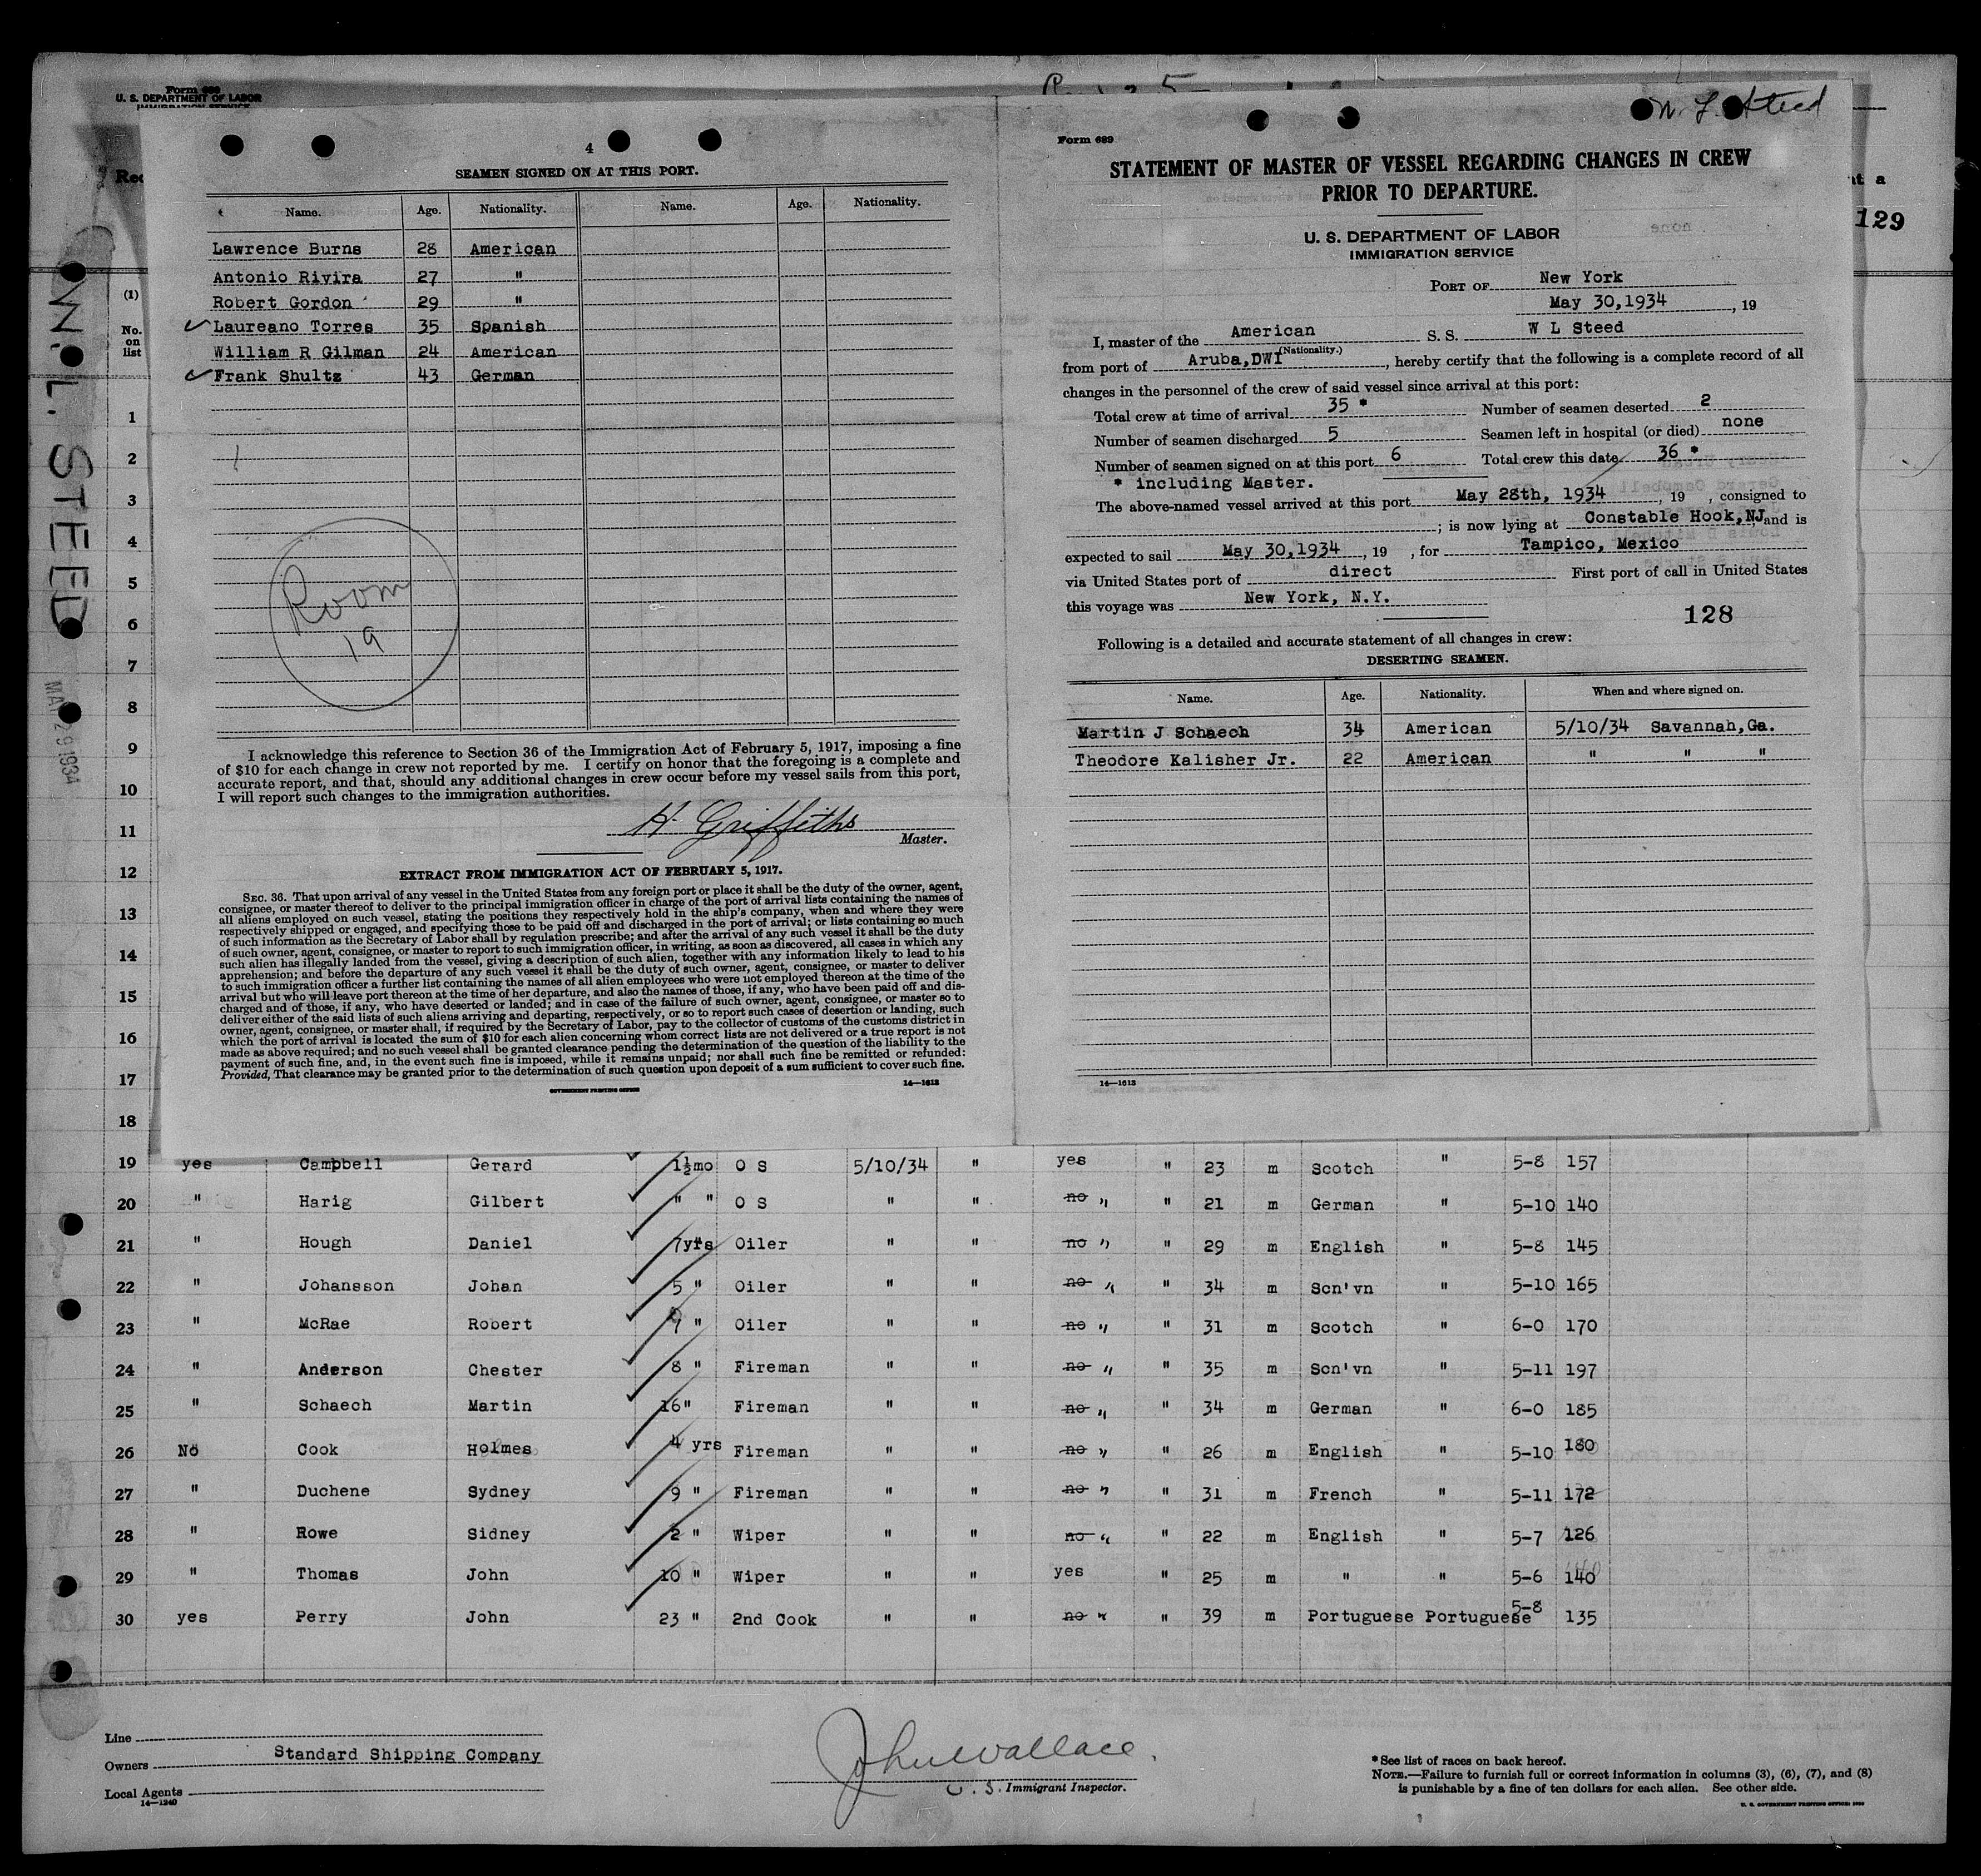 Form 689
U. S. DEPARTMENT OF LABOR
129
W. L. STEED
MAY 29 1934
4
SEAMEN SIGNED ON AT THIS PORT.
Name. Age. Nationality. Name. Age. Nationality.
Lawrence Burns 28 American
Antonio Rivira 27 "
Robert Gordon 29 "
✓ Laureano Torres 35 Spanish
William R Gilman 24 American
✓ Frank Shultz 43 German
Room
19
I acknowledge this reference to Section 36 of the Immigration Act of February 5, 1917, imposing a fine
of $10 for each change in crew not reported by me. I certify on honor that the foregoing is a complete and
accurate report, and that, should any additional changes in crew occur before my vessel sails from this port,
I will report such changes to the immigration authorities.
H. Griffiths
Master.
EXTRACT FROM IMMIGRATION ACT OF FEBRUARY 5, 1917.
SEC. 36. That upon arrival of any vessel in the United States from any foreign port or place it shall be the duty of the owner, agent,
consignee, or master thereof to deliver to the principal immigration officer in charge of the port of arrival lists containing the names of
all aliens employed on such vessel, stating the positions they respectively hold in the ship's company, when and where they were
respectively shipped or engaged, and specifying those to be paid off and discharged in the port of arrival; or lists containing so much
of such information as the Secretary of Labor shall by regulation prescribe; and after the arrival of any such vessel it shall be the duty
of such owner, agent, consignee, or master to report to such immigration officer, in writing, as soon as discovered, all cases in which any
such alien has illegally landed from the vessel, giving a description of such alien, together with any information likely to lead to his
apprehension; and before the departure of any such vessel it shall be the duty of such owner, agent, consignee, or master to deliver
to such immigration officer a further list containing the names of all alien employees who were not employed thereon at the time of the
arrival but who will leave port thereon at the time of her departure, and also the names of those, if any, who have been paid off and dis-
charged and of those, if any, who have deserted or landed; and in case of the failure of such owner, agent, consignee, or master so to
deliver either of the said lists of such aliens arriving and departing, respectively, or so to report such cases of desertion or landing, such
owner, agent, consignee, or master shall, if required by the Secretary of Labor, pay to the collector of customs of the customs district in
which the port of arrival is located the sum of $10 for each alien concerning whom correct lists are not delivered or a true report is not
made as above required; and no such vessel shall be granted clearance pending the determination of the question of the liability to the
payment of such fine, and, in the event such fine is imposed, while it remains unpaid; nor shall such fine be remitted or refunded:
Provided, That clearance may be granted prior to the determination of such question upon deposit of a sum sufficient to cover such fine.
GOVERNMENT PRINTING OFFICE 14—1613
W. L. Steed
Form 689
STATEMENT OF MASTER OF VESSEL REGARDING CHANGES IN CREW
PRIOR TO DEPARTURE.
U. S. DEPARTMENT OF LABOR
IMMIGRATION SERVICE
PORT OF New York
May 30,1934, 19
I, master of the American S. S. W L Steed
(Nationality.)
from port of Aruba,DWI, hereby certify that the following is a complete record of all
changes in the personnel of the crew of said vessel since arrival at this port:
Total crew at time of arrival 35 * Number of seamen deserted 2
Number of seamen discharged 5 Seamen left in hospital (or died) none
Number of seamen signed on at this port 6 Total crew this date 36 *
* including Master.
The above-named vessel arrived at this port May 28th, 1934, 19 , consigned to
; is now lying at Constable Hook,NJ and is
expected to sail May 30,1934, 19 , for Tampico, Mexico
via United States port of direct First port of call in United States
this voyage was New York, N.Y.
128
Following is a detailed and accurate statement of all changes in crew:
DESERTING SEAMEN.
Name. Age. Nationality. When and where signed on.
Martin J Schaech 34 American 5/10/34 Savannah,Ga.
Theodore Kalisher Jr. 22 American " " "
14—1613
(1)
No.
on
list
1
2
3
4
5
6
7
8
9
10
11
12
13
14
15
16
17
18
19 yes Campbell Gerard 1½mo O S 5/10/34 " yes " 23 m Scotch " 5-8 157
20 " Harig Gilbert " " O S " " no " " 21 m German " 5-10 140
21 " Hough Daniel 7yrs Oiler " " no " " 29 m English " 5-8 145
22 " Johansson Johan 5 " Oiler " " no " " 34 m Scn'vn " 5-10 165
23 " McRae Robert 7 " Oiler " " no " " 31 m Scotch " 6-0 170
24 " Anderson Chester 8 " Fireman " " no " " 35 m Scn'vn " 5-11 197
25 " Schaech Martin 16" Fireman " " no " " 34 m German " 6-0 185
26 No Cook Holmes 4 yrs Fireman " " no " " 26 m English " 5-10 180
27 " Duchene Sydney 9 " Fireman " " no " " 31 m French " 5-11 172
28 " Rowe Sidney 2 " Wiper " " no " " 22 m English " 5-7 126
29 " Thomas John 10 " Wiper " " yes " 25 m " " 5-6 140
30 yes Perry John 23 " 2nd Cook " " no " " 39 m Portuguese Portuguese 5-8 135
Line
Owners Standard Shipping Company
Local Agents
14—1240
John Wallace.
U. S. Immigrant Inspector.
*See list of races on back hereof.
NOTE.—Failure to furnish full or correct information in columns (3), (6), (7), and (8)
is punishable by a fine of ten dollars for each alien. See other side.